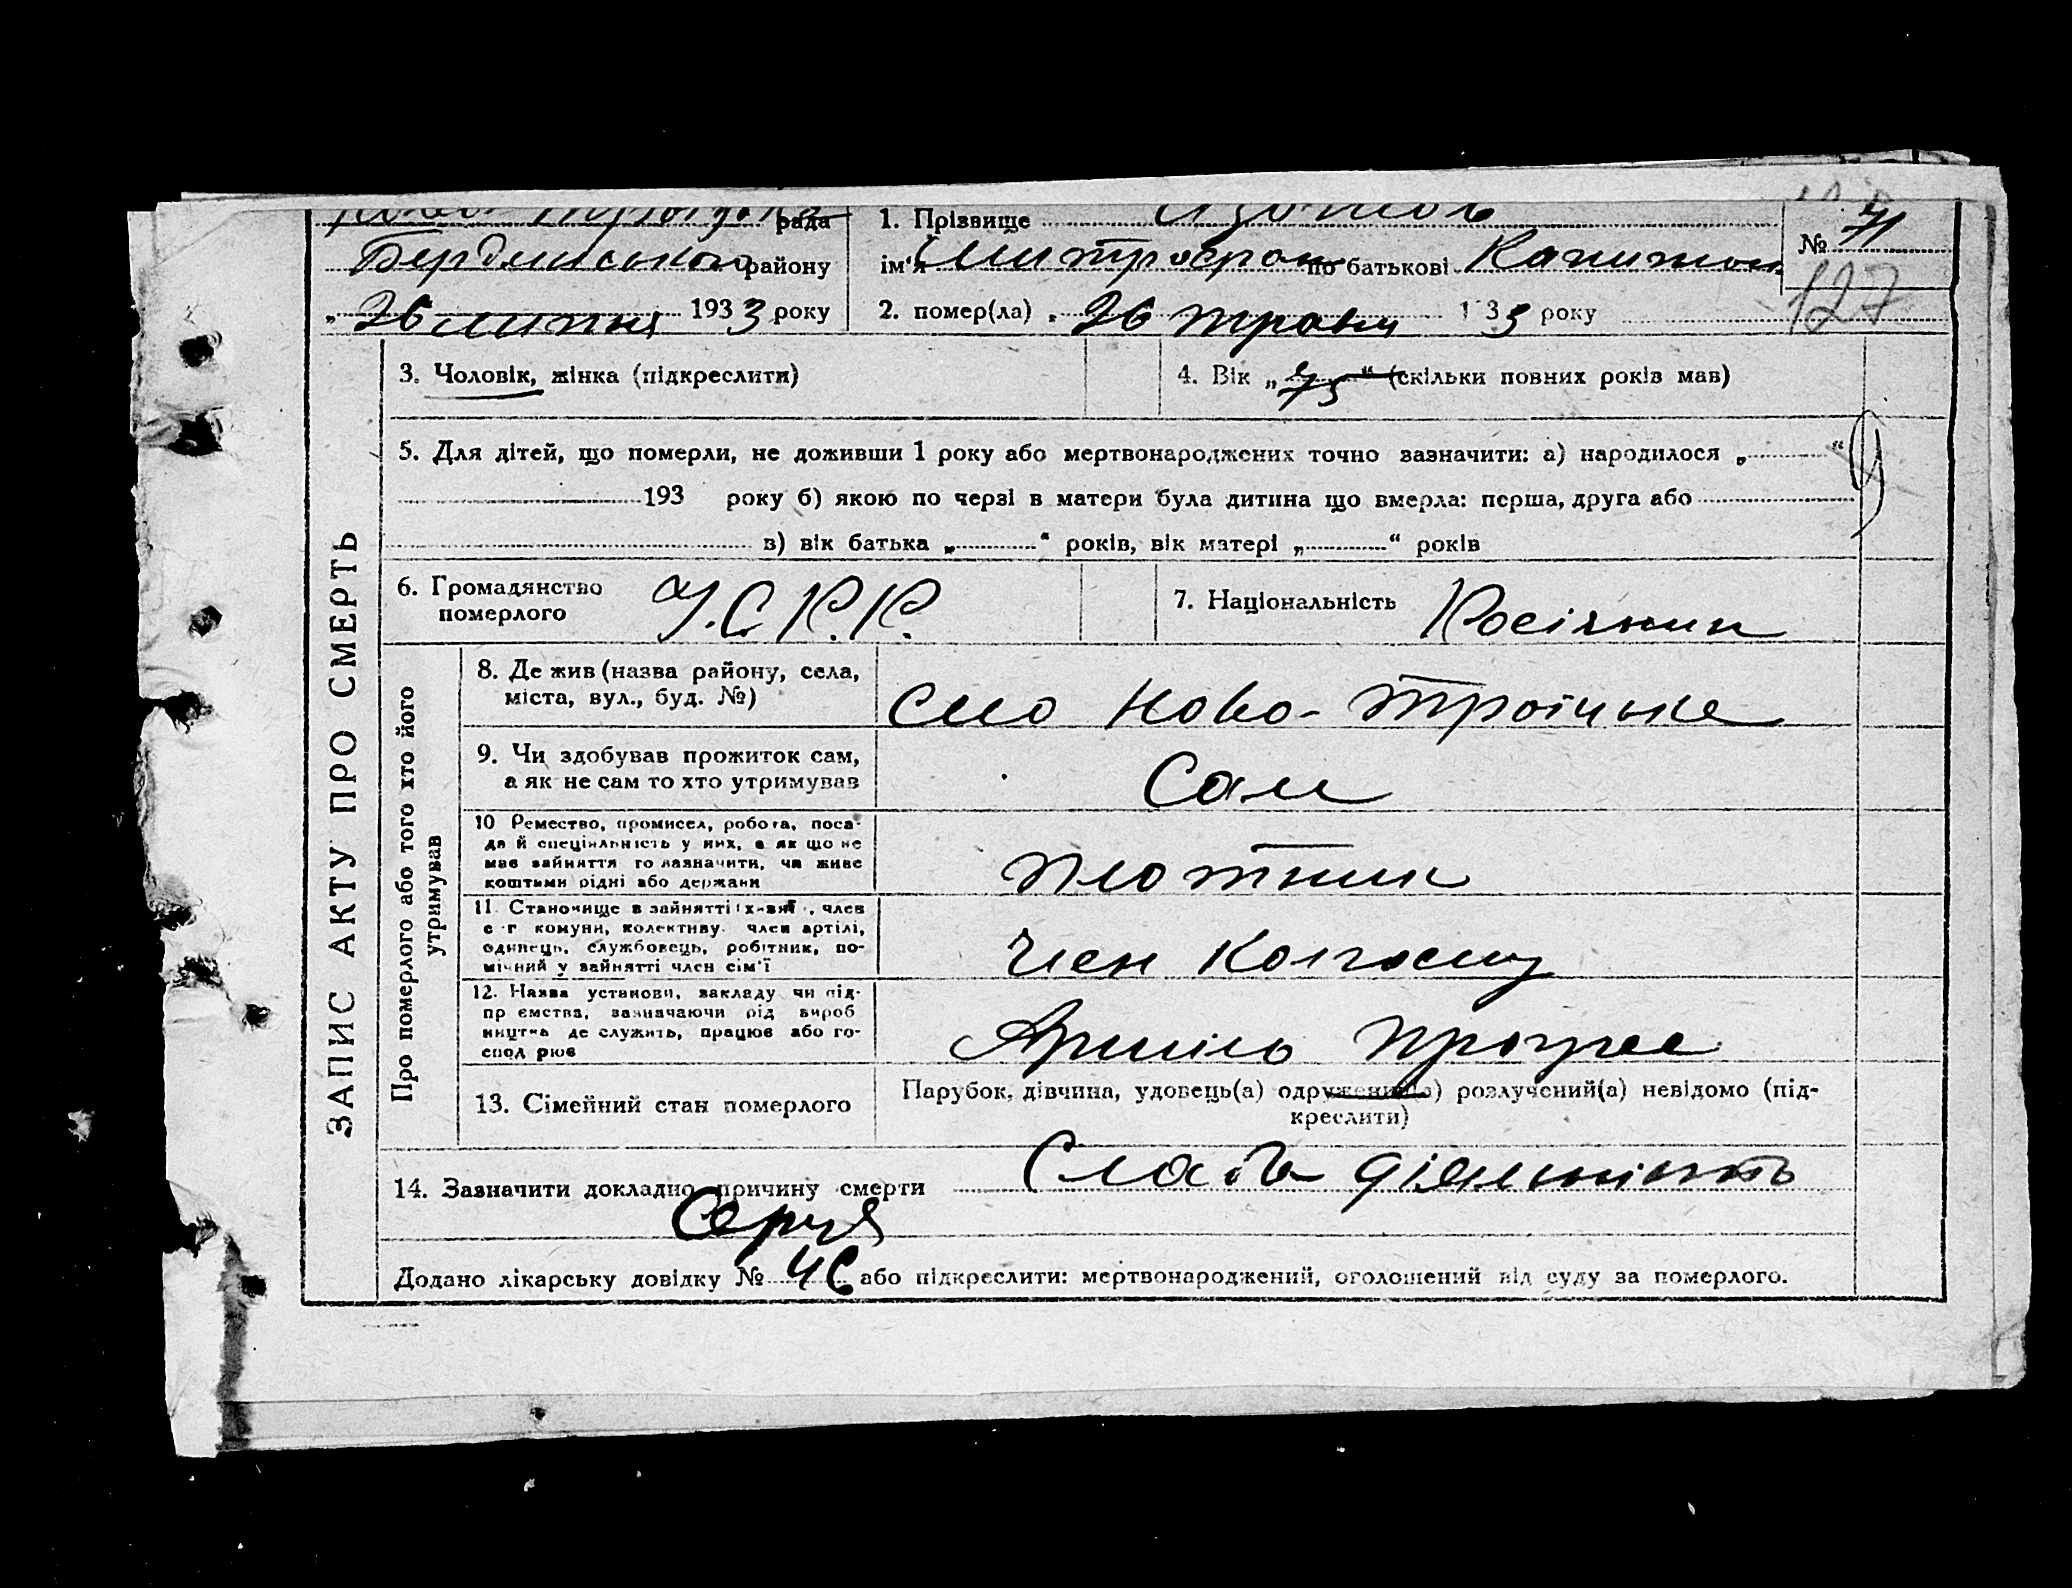 рада 1. Прізвище
Бердянського району ім'я Митрофан по батькові Капитон №
„ 26 липня 1933 року 2. помер(ла) „ 26 травня 1 33 року 127
ЗАПИС АКТУ ПРО СМЕРТЬ
3. Чоловік, жінка (підкреслити) 4. Вік „ 75 “ (скільки повних років мав)
5. Для дітей, що померли, не доживши 1 року або мертвонароджених точно зазначити: а) народилося „ “
193 року б) якою по черзі в матери була дитина що вмерла: перша, друга або
в) вік батька „ “ років, вік матері „ “ років
6. Громадянство
померлого У.С.Р.Р. 7. Національність Росіянин
Про померлого або того хто його
утримував
8. Де жив (назва району, села,
міста, вул., буд. №) село Ново-Троїцьке
9. Чи здобував прожиток сам,
а як не сам то хто утримував Сам
10 Ремество, промисел, робота, поса-
да й спеціяльність у них, а як що не
має зайняття то зазначити, чи живе
коштами рідні або держави плотник
11. Становище в зайнятті: , член
с г комуни, колективу член артілі,
одинець, службовець, робітник, по-
мічний у зайнятті член сім'ї член колгоспу
12. Назва установи, закладу чи під-
пр ємства, зазначаючи рід вироб
ництва де служить, працює або го-
спод рює Артіль
13. Сімейний стан померлого Парубок, дівчина, удовець(а) одружений(а) розлучений(а) невідомо (під-
креслити)
14. Зазначити докладно причину смерти Слаба діяльність
Серця
Додано лікарську довідку № 46 або підкреслити: мертвонароджений, оголошений від суду за померлого.